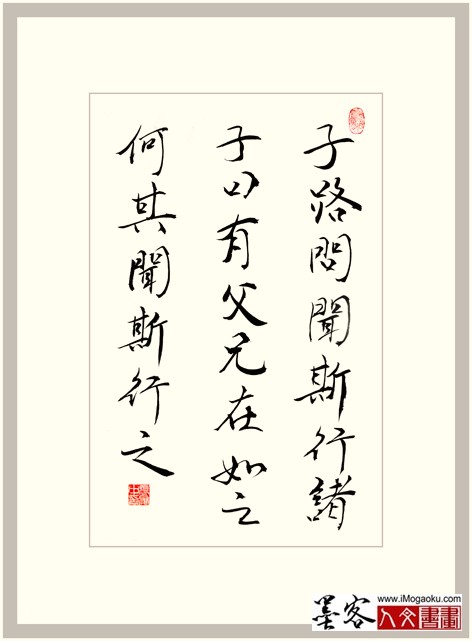 子路問聞斯行諸
子曰有父兄在如之
何其聞斯行之
墨客
www.iMogaoku.com
人文書畫